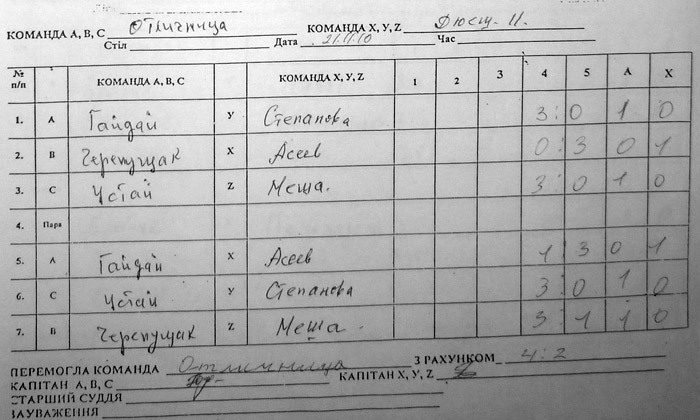 КОМАНДА А, В, С Отличница КОМАНДА X, Y, Z Дюсш - II.
Стіл Дата 21.11.10 Час
№ п/п КОМАНДА А, В, С КОМАНДА X, Y, Z 1 2 3 4 5 А Х
1. А Гайдай У Степанова 3:0 1 0
2. В Черепущак Х Асеев 0:3 0 1
3. С Устай Z Меша. 3:0 1 0
4. Пара
5. А Гайдай Х Асеев 1:3 0 1
6. С Устай У Степанова 3:0 1 0
7. В Черепущак Z Меша. 3 1 1 0
ПЕРЕМОГЛА КОМАНДА Отличница З РАХУНКОМ 4:2
КАПІТАН А, В, С КАПІТАН X, Y, Z
СТАРШИЙ СУДДЯ
ЗАУВАЖЕННЯ